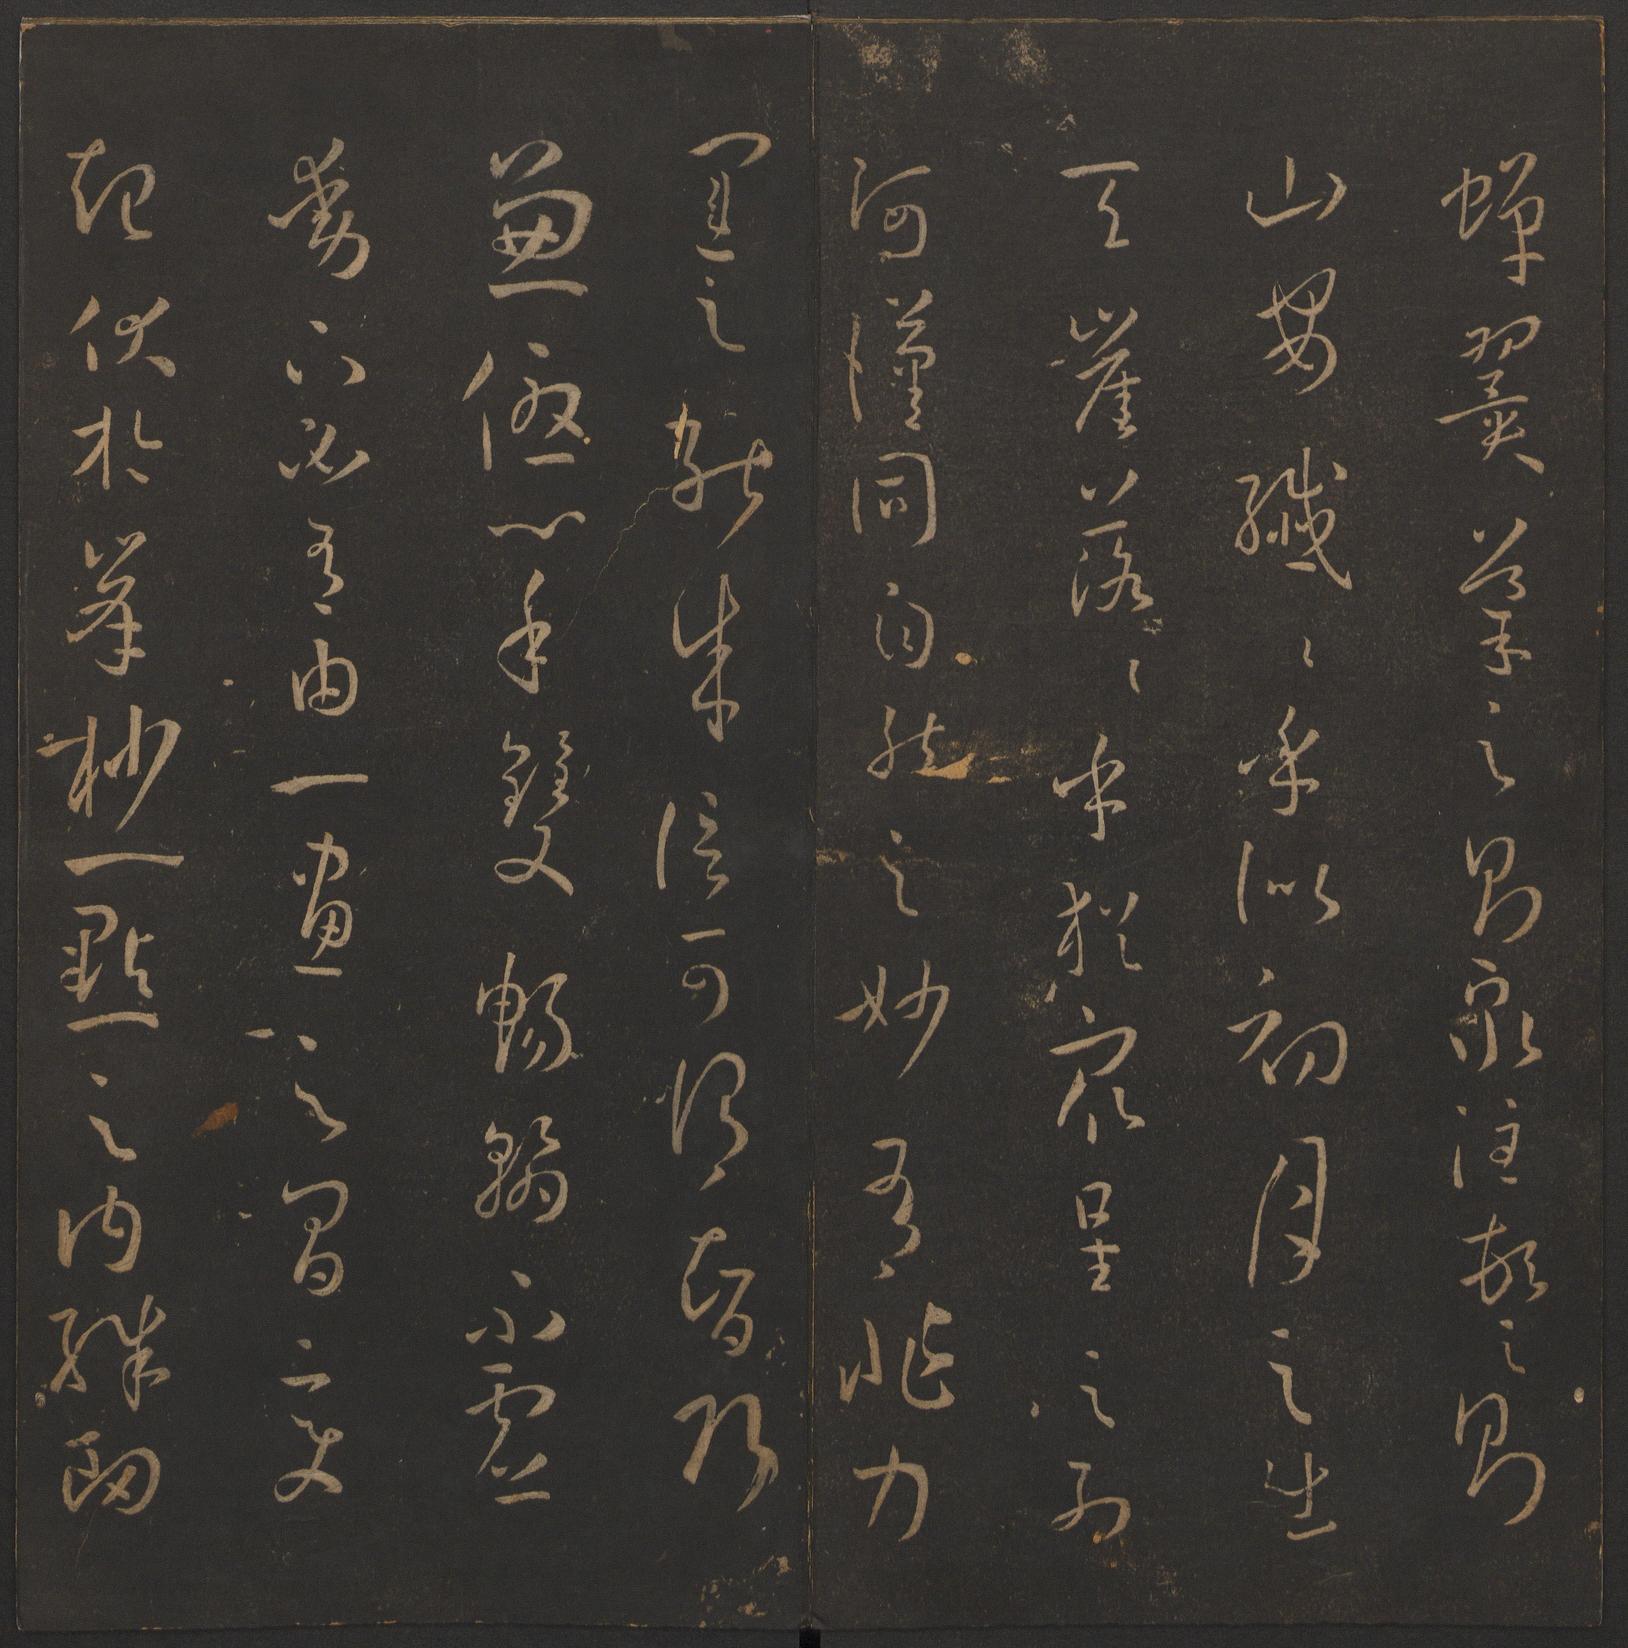 蟬翼導之則泉注頓之則
山安纖〻乎似初月之出
天崖落〻乎猶衆星之列
河漢同自然之妙有非力
運之能成信可謂智巧
兼優心手雙暢翰不虛
動下必有由一畫之間變
起伏於峯杪一點之內殊衄